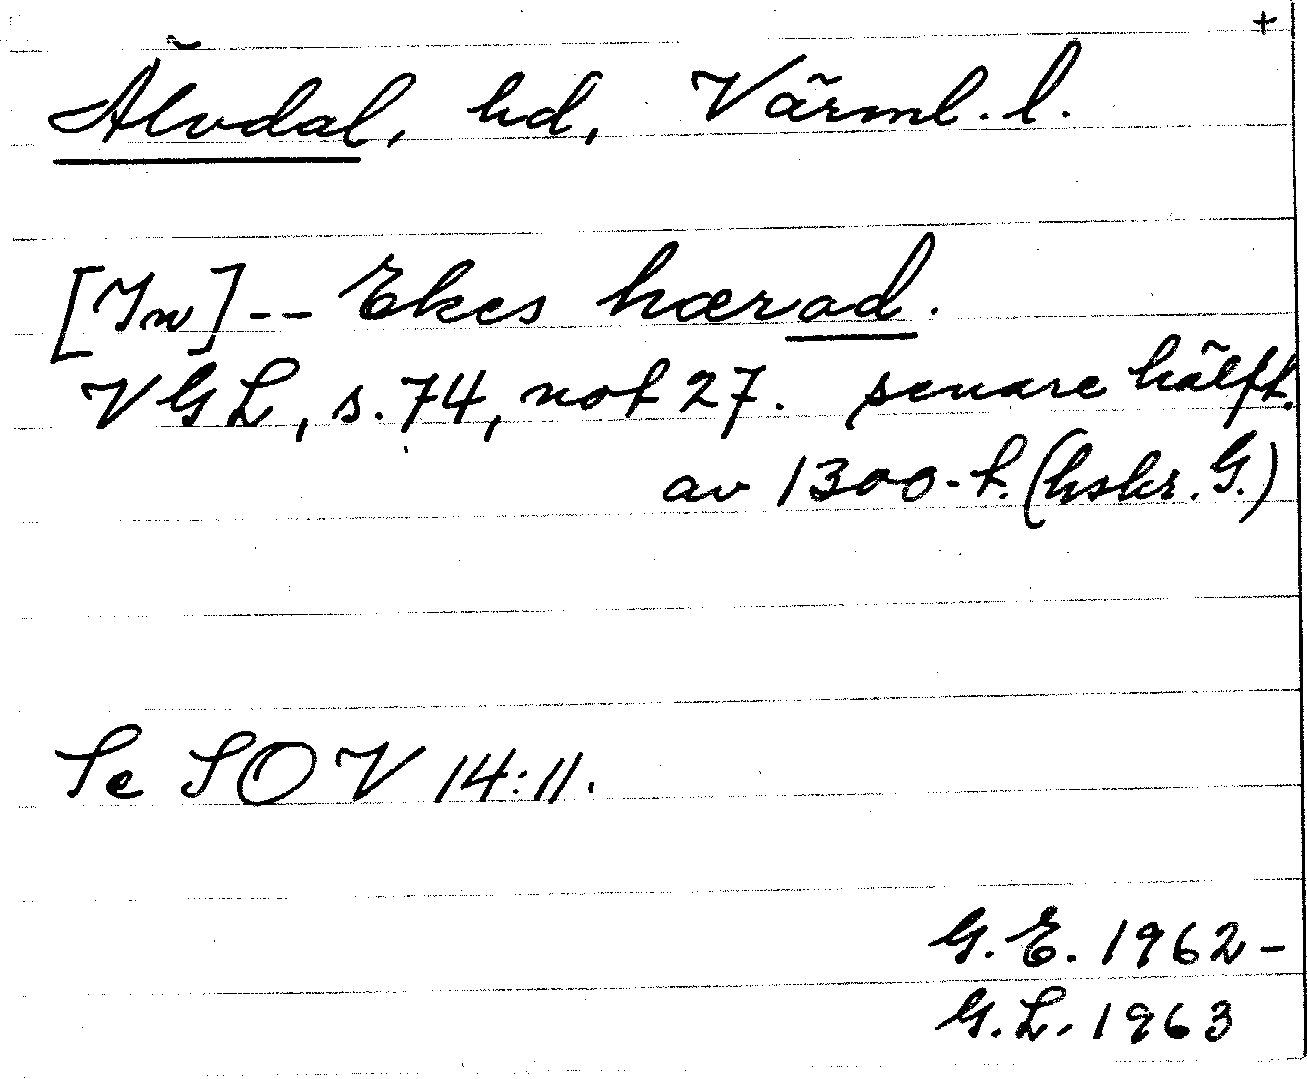 +
Älvdal, hd, Värml. l.
[In] -- Ekes hærad.
VGL, s. 74, not 27. senare hälft.
av 1300-t. (hskr. G.)
Se SOV 14:11.
G. E. 1962-
G. L. 1963